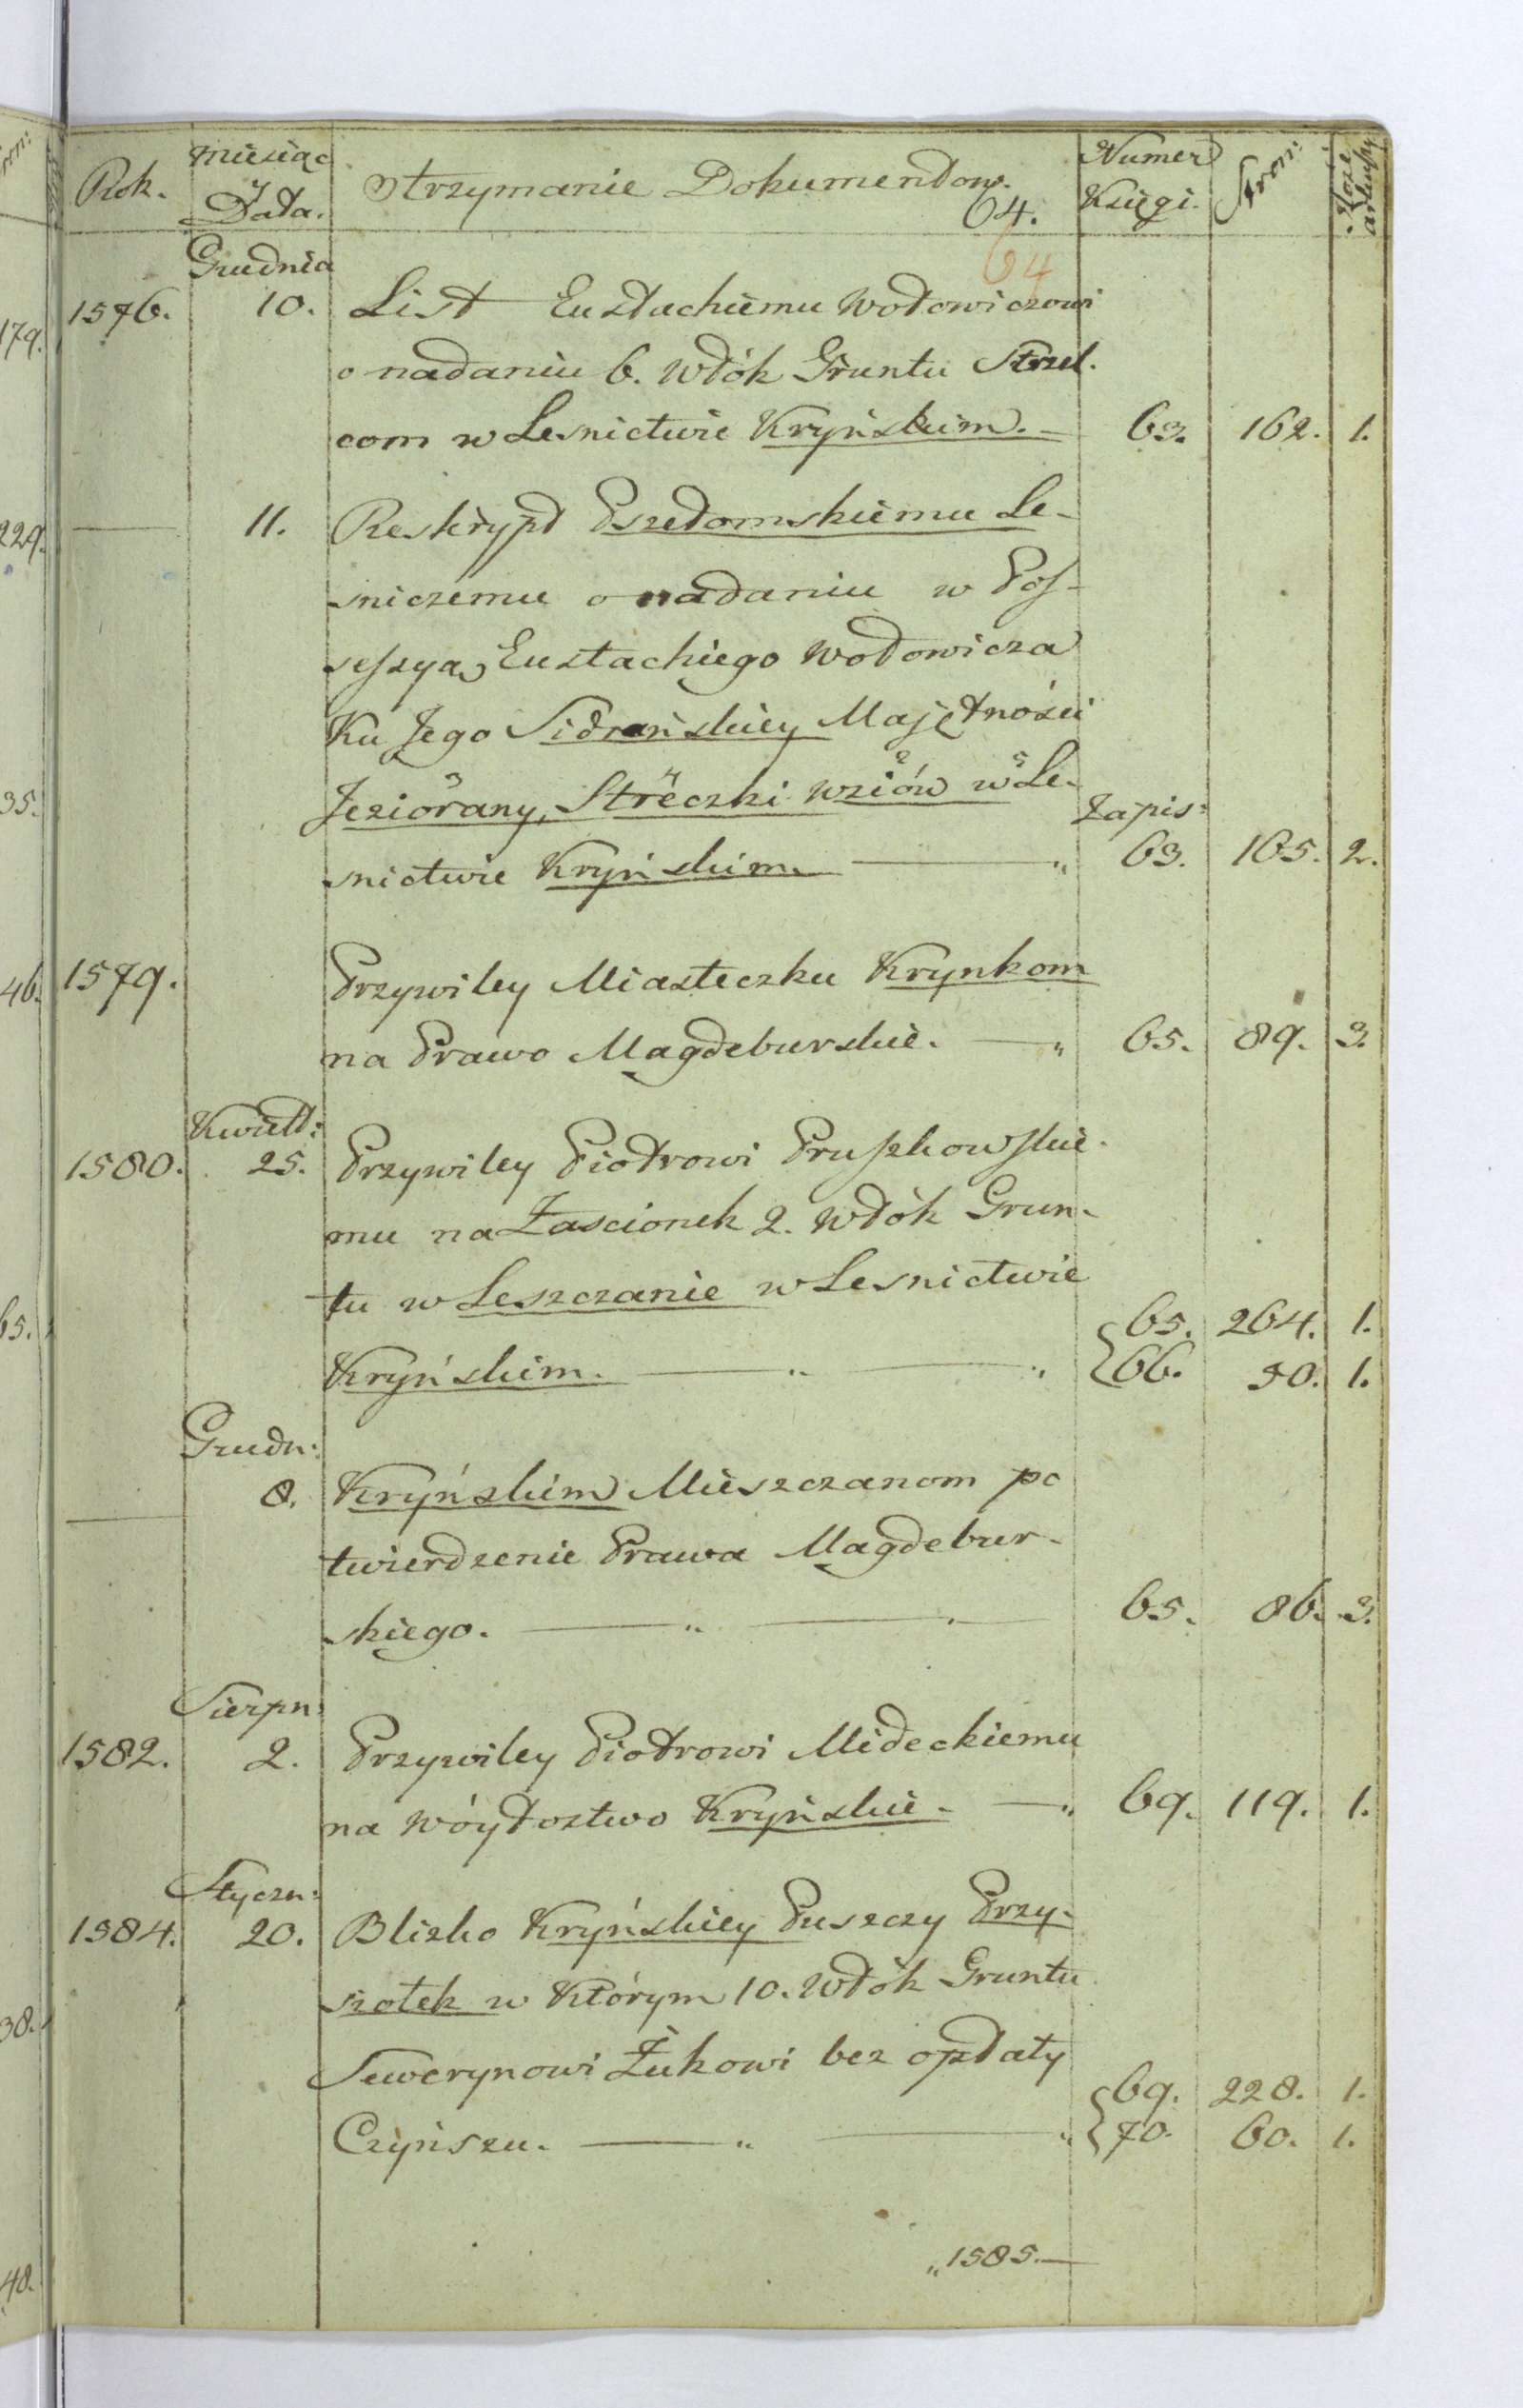 Rok.
miesiąc
Data.
Otrzymanie Dokumentow.
64.
Numer
Księgi.
Stron:
arkuszy
64
Grudnia
1576. 10. List Eustachiemu Wołowiczowi
o nadaniu 6. Włók Gruntu Strzel-
com w Lesnictwie Kryńskim. — 63. 162. 1.
— 11. Reskrypt Eszełomskiemu Le-
sniczemu o nadaniu w Pos-
sessyą Eustachiego Wołowicza
Ku Jego Sidrańskiey Majętności
Jeziórany, Streczki wziów w Le-
Zapis:
snictwie Kryńskim. — „ 63. 165. 2.
1579. Przywiley Miasteczku Krynkom
na Prawo Magdeburskie. — „ 65. 89. 3.
Kwiet:
1580. 25. Przywiley Piotrowi Pruszkowskie-
mu na Zascionek 2. Włók Grun-
tu w Leszczanie w Lesnictwie
65. 264. 1.
Kryńskim. — „ — „ 66. 50. 1.
Grudn:
— 8. Kryńskim Mieszczanom po
twierdzenie Prawa Magdebur-
skiego. — „ — „ — 65. 86. 3.
Sierpn:
1582. 2. Przywiley Piotrowi Mideckiemu
na Wóytostwo Kryńskie. — „ 69. 119. 1.
Styczn:
1584. 20. Blizko Kryńskiey Puszczy Przy-
siołek w Którym 10. Włók Gruntu
Sewerynowi Żukowi bez opłaty
69. 228. 1.
Czyńszu. — „ — „ 70. 60. 1.
„1585.—
179.
229.
35.
46.
65.
38.
48.